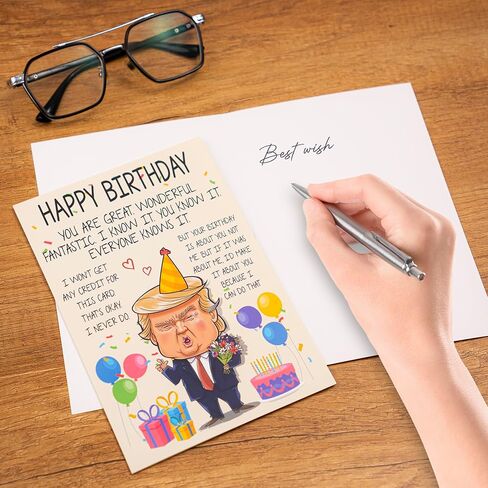 HAPPY BIRTHDAY
YOU ARE GREAT, WONDERFUL
FANTASTIC I KNOW IT YOU KNOW IT
EVERYONE KNOWS IT
I WON'T GET
ANY CREDIT FOR
THIS CARD.
THAT'S OKAY.
I NEVER DO.
BUT YOUR BIRTHDAY
IS ABOUT YOU NOT
ME BUT IF IT WAS
ABOUT ME, I'D MAKE
IT ABOUT YOU
BECAUSE I
CAN DO THAT
Best wish